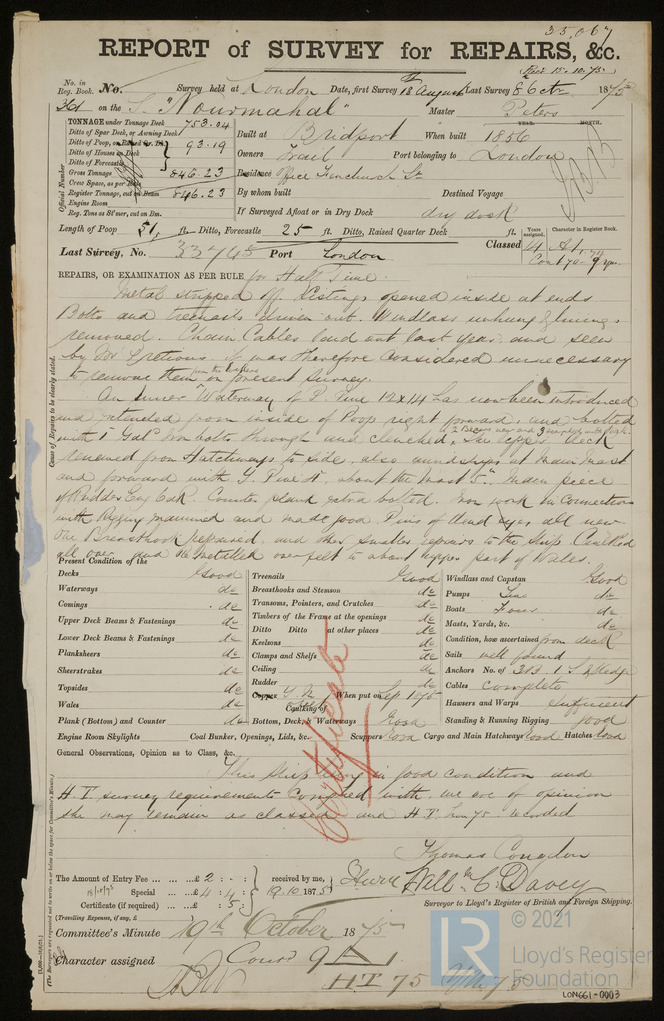 33,067
REPORT of SURVEY for REPAIRS, &c.
Rec 15.10.75
No. in Reg. Book. No. Survey held at London Date, first Survey 18th August Last Survey 8 Octr 1875
on the S. "Nourmahal" Master Peters
TONNAGE under Tonnage Deck 753.04
Ditto of Spar Deck, or Awning Deck
Ditto of Poop, or Raised Qr. Dk. 93.19
Ditto of Houses on Deck
Ditto of Forecastle
Gross Tonnage 846.23
Crew Space, as per Rule
Register Tonnage, cut on Beam 846.23
Engine Room
Reg. Tons as St'mer, cut on Bm.
Official Number
Built at Bridport When built YEAR. 1856 MONTH.
Owners Trail Port belonging to London
Residence Office Fenchurch St
By whom built Destined Voyage
If Surveyed Afloat or in Dry Dock dry dock
Length of Poop 51 ft. Ditto, Forecastle 25 ft. Ditto, Raised Quarter Deck ft.
Years assigned. Character in Register Book.
Classed 4 A1
Last Survey, No. 33745 Port London
Con 170 9 yrs
REPAIRS, OR EXAMINATION AS PER RULE for Half Time.
Metal stripped off. Listings opened inside at ends
Bolts and treenails driven out. Windlass unhung & linings
removed. Chain Cables laid out last year and seen
by Mr. it was therefore considered unnecessary
to remove them from the lockers on present survey.
An inner Waterway of P. Pine 12x14 has now been introduced
and extended from inside of Poop right forward, and bolted
with 1" Gal Iron bolts through and clenched, The upper deck
renewed from Hatchways to side, also amidships at Main Mast
and forward with Y. Pine 4, about the mast 5". Main piece
of Rudder Eng Oak. Counter plank extra bolted. Iron work in connection
with Rigging examined and made good. Pins of dead eyes all new
One Breasthook repaired, and other smaller repairs to the ship. Caulked
all over and Re metalled over felt to about upper part of Wales.
Cause of Repairs to be clearly stated.
Present Condition of the
Decks Good Treenails Good Windlass and Capstan Good
Waterways do Breasthooks and Stemson do Pumps do
Comings do Transoms, Pointers, and Crutches do Boats Four do
Upper Deck Beams & Fastenings do Timbers of the Frame at the openings do Masts, Yards, &c. do
Lower Deck Beams & Fastenings do Ditto Ditto at other places do Condition, how ascertained from deck
Planksheers do Keelsons do Sails well found
Sheerstrakes do Clamps and Shelfs do Anchors No. of 3B3.1.S.2Kedge
Topsides do Ceiling do Cables Complete
Wales do Rudder do Hawsers and Warps sufficient
Plank (Bottom) and Counter do Copper Y.M. When put on Sep 1875 Standing & Running Rigging good
Caulking of Bottom, Deck, & Waterways Good
Engine Room Skylights Coal Bunker, Openings, Lids, &c. Scuppers Good Cargo and Main Hatchways Good Hatches Good
General Observations, Opinion as to Class, &c.
This Ship being in good condition and
H T survey requirements complied with, we are of opinion
she may remain as classed and H.T. Lon 75 recorded
Certificate
Thomas Congdon
Will C. Davey
Surveyor to Lloyd's Register of British and Foreign Shipping.
The Amount of Entry Fee ... ... £2 : - : received by me,
18/10/75 Special ... ... £4 : 4 : 19.10.1875
Certificate (if required) ... £ : 5 :
(Travelling Expenses, if any, £
Committee's Minute 19th October 1875
Character assigned Cont 9 A1
HT 75
(The Surveyors are requested not to write on or below the space for Committee's Minute.)
© 2021
LR
Lloyd's Register
Foundation
LON661-0003